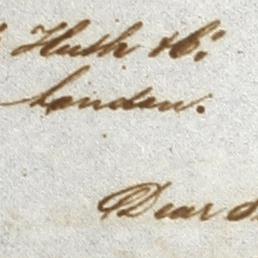 Huth & Co:
London.
Dear